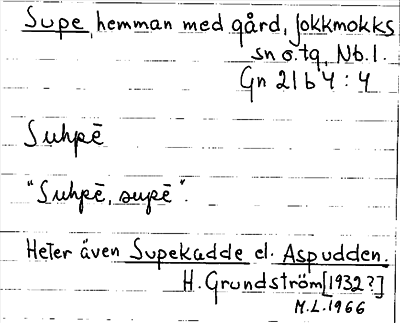 Supe, hemman med gård, Jokkmokks
sn o. tg, Nb.l.
Gn 21 b 4 : 4
Suhpē
"Suhpē, supē".
Heter även Supekadde el. Aspudden.
H. Grundström [1932?]
M.L. 1966